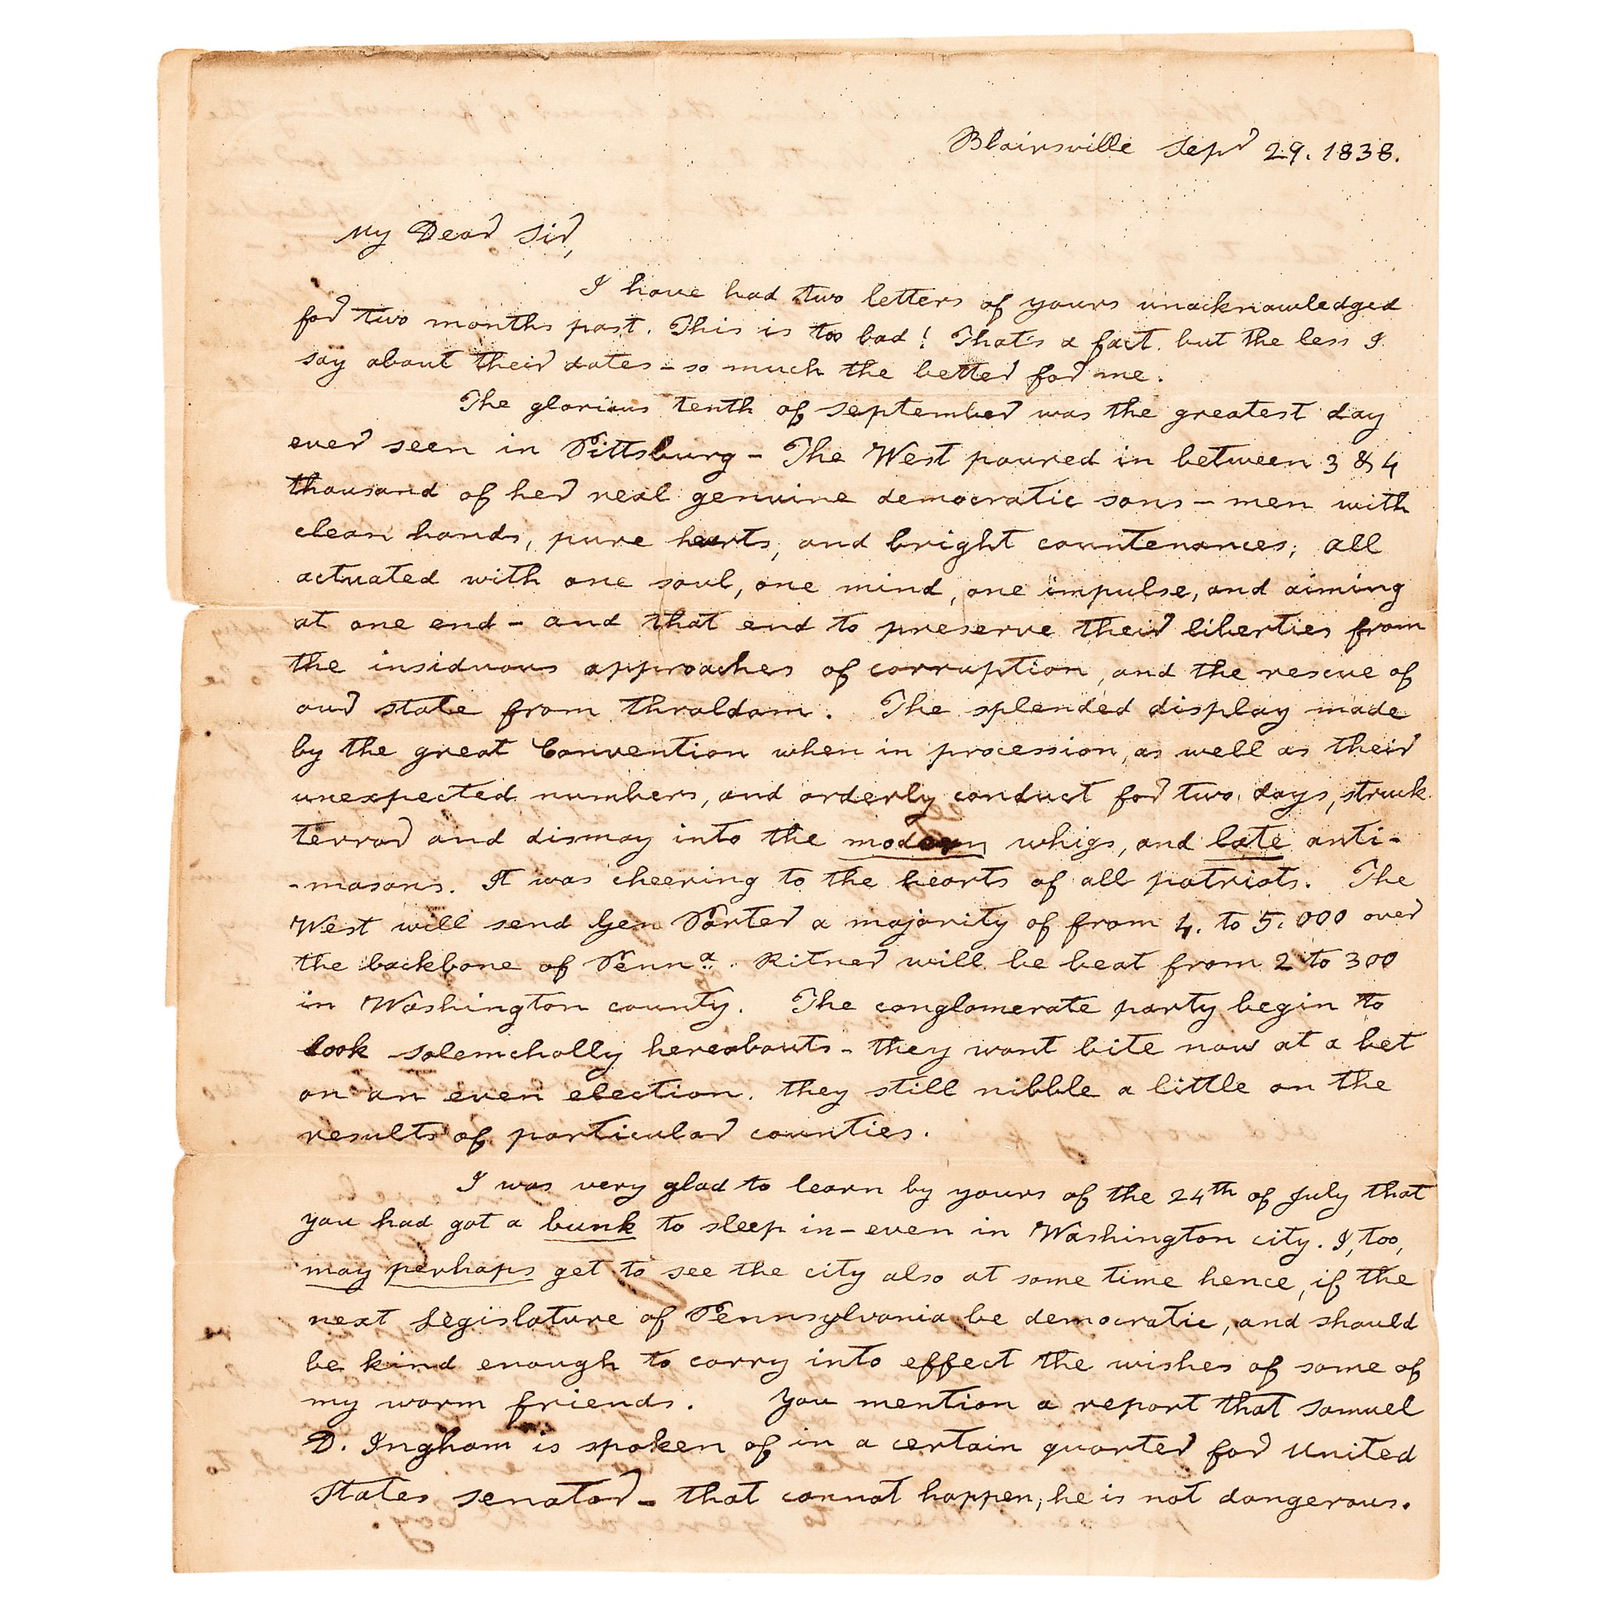 Blairsville Sepr 29. 1838.
My Dear Sir,
I have had two letters of yours unacknowledged
for two months past. This is too bad! That's a fact. but the less I
say about their dates - so much the better for me.
The glorious tenth of September was the greatest day
ever seen in Pittsburg - The West poured in between 3 & 4
thousand of her real genuine democratic sons - men with
clean hands, pure hearts, and bright countenances; all
actuated with one soul, one mind, one impulse, and aiming
at one end - and that end to preserve their liberties from
the insiduous approaches of corruption, and the rescue of
our state from thraldom. The splended display made
by the great Convention when in procession, as well as their
unexpected numbers, and orderly conduct for two days, struck
terror and dismay into the modern whigs, and late anti-
-masons. It was cheering to the hearts of all patriots. The
West will send Gen Porter a majority of from 4. to 5.000 over
the backbone of Penna. Ritner will be beat from 2 to 300
in Washington county. The conglomerate party begin to
look solemcholly hereabouts - they wont bite now at a bet
on an even election. they still nibble a little on the
results of particular counties.
I was very glad to learn by yours of the 24th of July that
you had got a bunk to sleep in - even in Washington city. I, too,
may perhaps get to see the city also at some time hence, if the
next Legislature of Pennsylvania be democratic, and should
be kind enough to carry into effect the wishes of some of
my warm friends. You mention a report that Samuel
D. Ingham is spoken of in a certain quarter for United
States senator - that cannot happen; he is not dangerous.